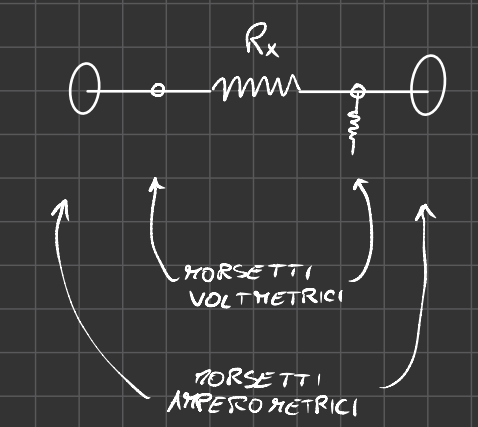 Rx
MORSETTI
VOLTMETRICI
MORSETTI
AMPEROMETRICI